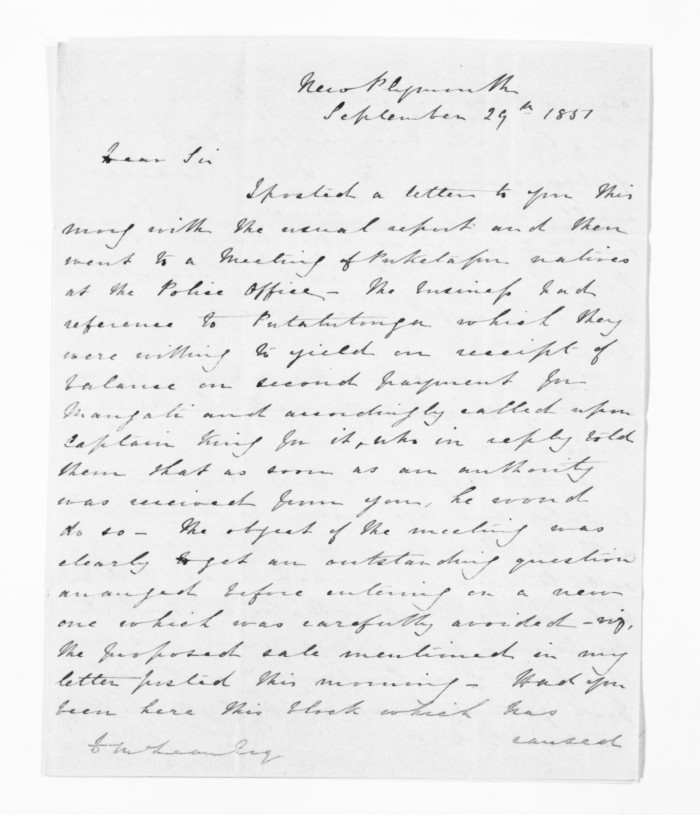 New Plymouth
September 29th 1851
Dear Sir
I posted a letter to you this
morng with the usual report and then
went to a Meeting of Puketapu natives
at the Police Office – The business had
reference to Putatutonga which they
were willing to yield on receipt of
balance on second payment for
Mangati and accordingly called upon
Captain King for it, who in reply told
them that as soon as an authority
was received from you, he would
do so – The object of the meeting was
clearly to get an outstanding question
arranged before entering on a new
one which was carefully avoided – viz,
the proposed sale mentioned in my
letter posted this morning – Had you
been here this block which has
caused
D McLean Esq